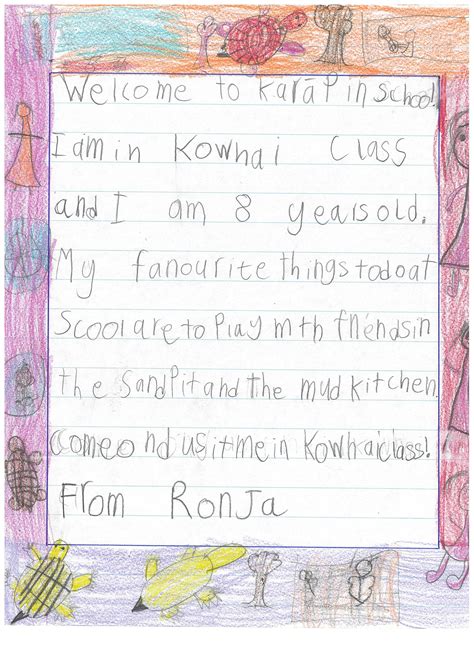 Welcome to Karāpin school!
I am in Kowhai Class
and I am 8 years old.
My fanourite things to do at
Scool are to Play with friends in
the SandPit and the mud kitchen.
Come and usit me in Kowhai class!
From Ronja